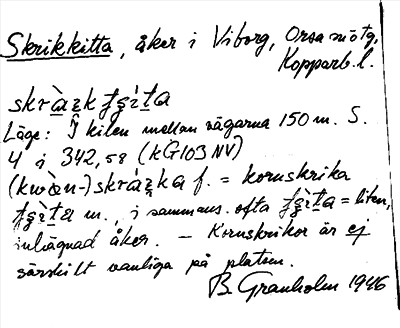 Skrikkitta, åker i Viborg, Orsa sn östg,
Kopparb. l.
skràzk
Läge: I kilen mellan vägarna 150 m. S.
4 i 342,58 (kG103 NV)
f. = kornskrika
m., i sammans. ofta = liten,
inhägnad åker. — Kornskrikor är ej
särskilt vanliga på platsen.
B. Granholm 1946